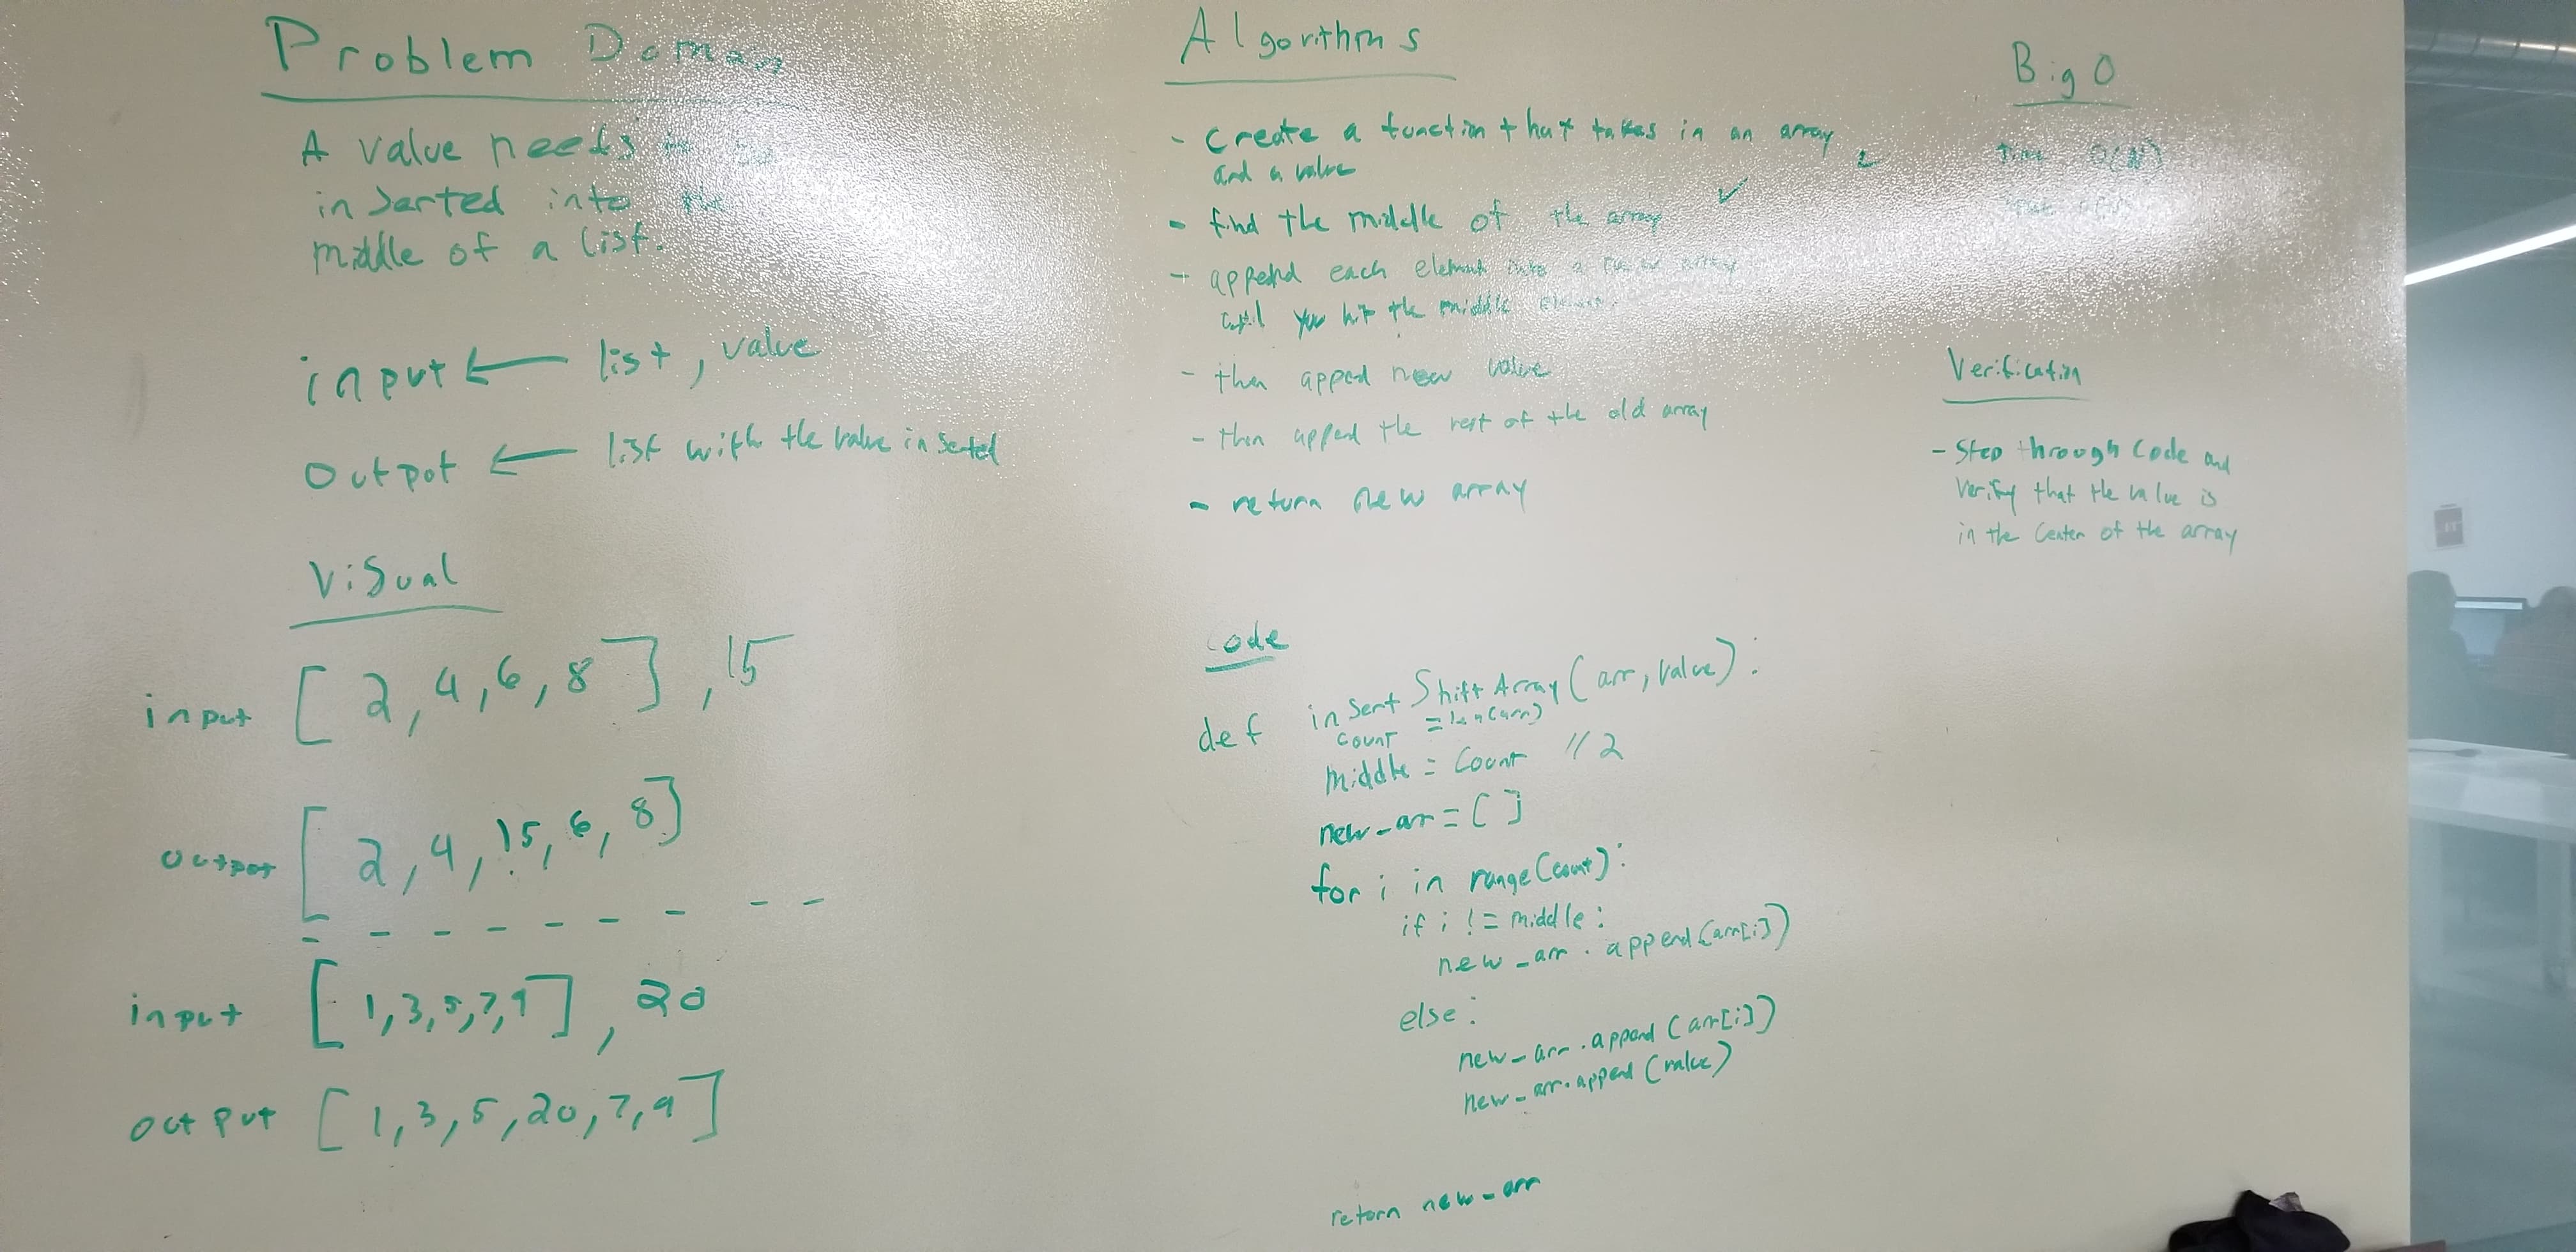 Problem Domain
A value needs
inserted into the
middle of a list.
input ← list, value
Output ← list with the value inserted
Visual
input [2, 4, 6, 8], 15
output [2, 4, 15, 6, 8]
- - - - - - - - -
input [1, 3, 5, 7, 9], 20
output [1, 3, 5, 20, 7, 9]
Algorithms
- Create a function that takes in an array
and a value
- find the middle of the array ✓
- append each element into a new array
until you hit the middle element.
- then apped new value
- then append the rest of the old array
- return new array
Code
def insertShiftArray(arr, value):
count = len(arr)
middle = count // 2
new_arr = []
for i in range(count):
if i != middle:
new_arr.append(arr[i])
else:
new_arr.append(arr[i])
new_arr.append(value)
return new_arr
Big O
Time O(N)
Verification
- Step through Code and
Verify that the value is
in the Center of the array